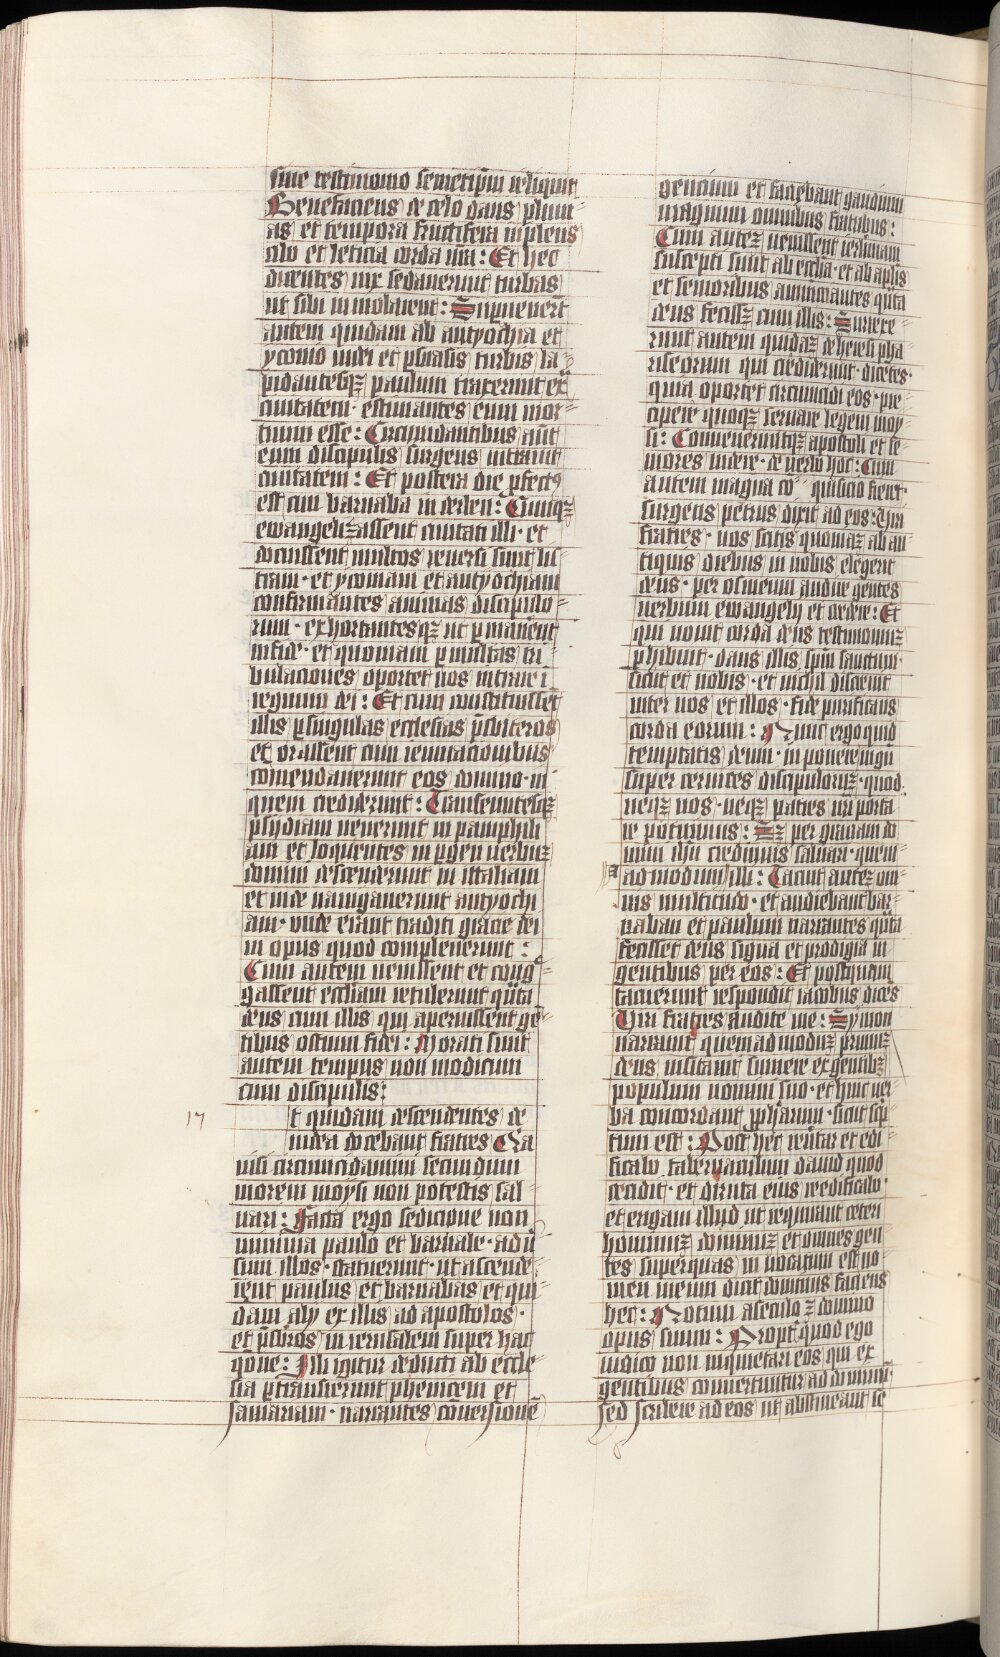 sine testimonio semetip̄m reliquit
Benefaciens de celo dans pluui
as et tempora fructifera inplens
cibo et leticia corda n̄ra : Et hec
dicentes vix sedauerunt turbas
ut sibi inmolarent : Sup̄uenert̄
autem quidam ab antyochia et
yconio iudei et p̄suasis turbis la
pidantesqꝫ paulum traxerunt ex̄
ciuitatem · estimantes eum mor
tuum esse : Circumdantibus aūt
eum discipulis surgens intrauit
ciuitatem : Et postera die p̄fectꝰ
est cum barnaba in derben : Cumqꝫ
ewangelizassent ciuitati illi · et
docuissent multos reuersi sunt lis
tram · et yconiam et antyochiam
confirmantes animas discipulo
rum · exhortantesqꝫ ut p̄manerent
in fide · et quoniam p̄ multas tri
bulaciones oportet nos intrare ī
regnum dei : Et cum constituissēt
illis p̄ singulas ecclesias p̄sbiteros
et orassent cum ieiunacionibus
comendauerunt eos domino · in
quem crediderunt : Transeuntesqꝫ
psydiam uenerunt in pamphili
am et loquentes in pgen uerbuꝫ
domini descenderunt in ittaliam
et inde nauigauerunt antyochi
am · unde erant traditi gracie dei
in opus quod compleuerunt :
Cum autem uenissent et conḡ
gassent eccl̄iam retulerunt q̄nta
deus cum illis qui aperuissent ge
tibus ostium fidei : Morati sunt
autem tempus non modicum
cum discipulis :
17
t quidam descendentes de
iudea docebant fratres Qia
nisi circumcidamini secundum
morem moysi non potestis sal
uari : Facta ergo sedicione non
minima paulo et barnabe · adū
sum illos · statuerunt · ut ascende
rent paulus et barnabas et qui
dam alij ex illis ad apostolos ·
et p̄sbr̄os in ierusalem super hac
q̄one : Illi igitur deducti ab eccle
sia p̄transierunt phenicem et
samariam · narrantes cōuersionē
gencium et faciebant gaudium
magnum omnibus fratribus :
Cum autem uenissent ierl̄imam
suscepti sunt ab eccl̄ia · et ab ap̄lis
et senioribus annunciantes q̄nta
deus fecissꝫ cum illis : Surrexe
runt autem quidaꝫ de heresi pha
riseorum qui crediderunt · dicētes ·
quia oportet circumcidi eos · pre
cipere quoqꝫ seruare legem moy
si : Conueneruntqꝫ apostoli et se
niores uidere · de uerbo hoc : Cum
autem magna cō quisicio fieret ·
surgens petrus dixit ad eos : Viri
fratres · uos scitis quoniaꝫ ab an
tiquis diebus in nobis elegerit
deus · per os meum audire gentes
uerbum ewangelij et credere : Et
qui nouit corda deus testimoniuꝫ
p̄hibuit · dans illis sp̄m sanctum ·
sicut et nobis · et nichil discreuit
inter nos et illos · fide purificans
corda eorum : Nunc ergo quid
temptatis deum · inponere iugū
super ceruices discipuloruꝫ · quod
neqꝫ nos · neqꝫ patres n̄ri porta
re potuimus : Sꝫ per graciam do
mini ihū credimus saluari · quem
ad modum illi : Tacuit autem om
nis multitudo · et audiebant bar
naban et paulum narrantes q̄nta
fecisset deus signa et prodigia in
gentibus per eos : Et postquam
tacuerunt respondit iacobus dicēs
Viri fratres audite me : Symon
narrauit quem ad moduꝫ primuꝫ
deus uisitauit sumere ex gentibꝫ
populum nomini suo · et huic uer
ba concordant p̄pharum · sicut scp̄
tum est : Post hec reūtar et edi
ficabo tabernaculum dauid quod
cecidit · et diruta eius reedificabo ·
et erigam illud ut requirant ceteri
hominuꝫ dominuꝫ et omnes gen
tes superquas inuocatum est no
men meum dicit dominus faciens
hec : Notum a seculo ꝫ domino
opus suum : Propt̄ quod ego
iudico non inquietari eos qui ex
gentibus conuertuntur ad dominū ·
sed scribere ad eos ut abstineant se